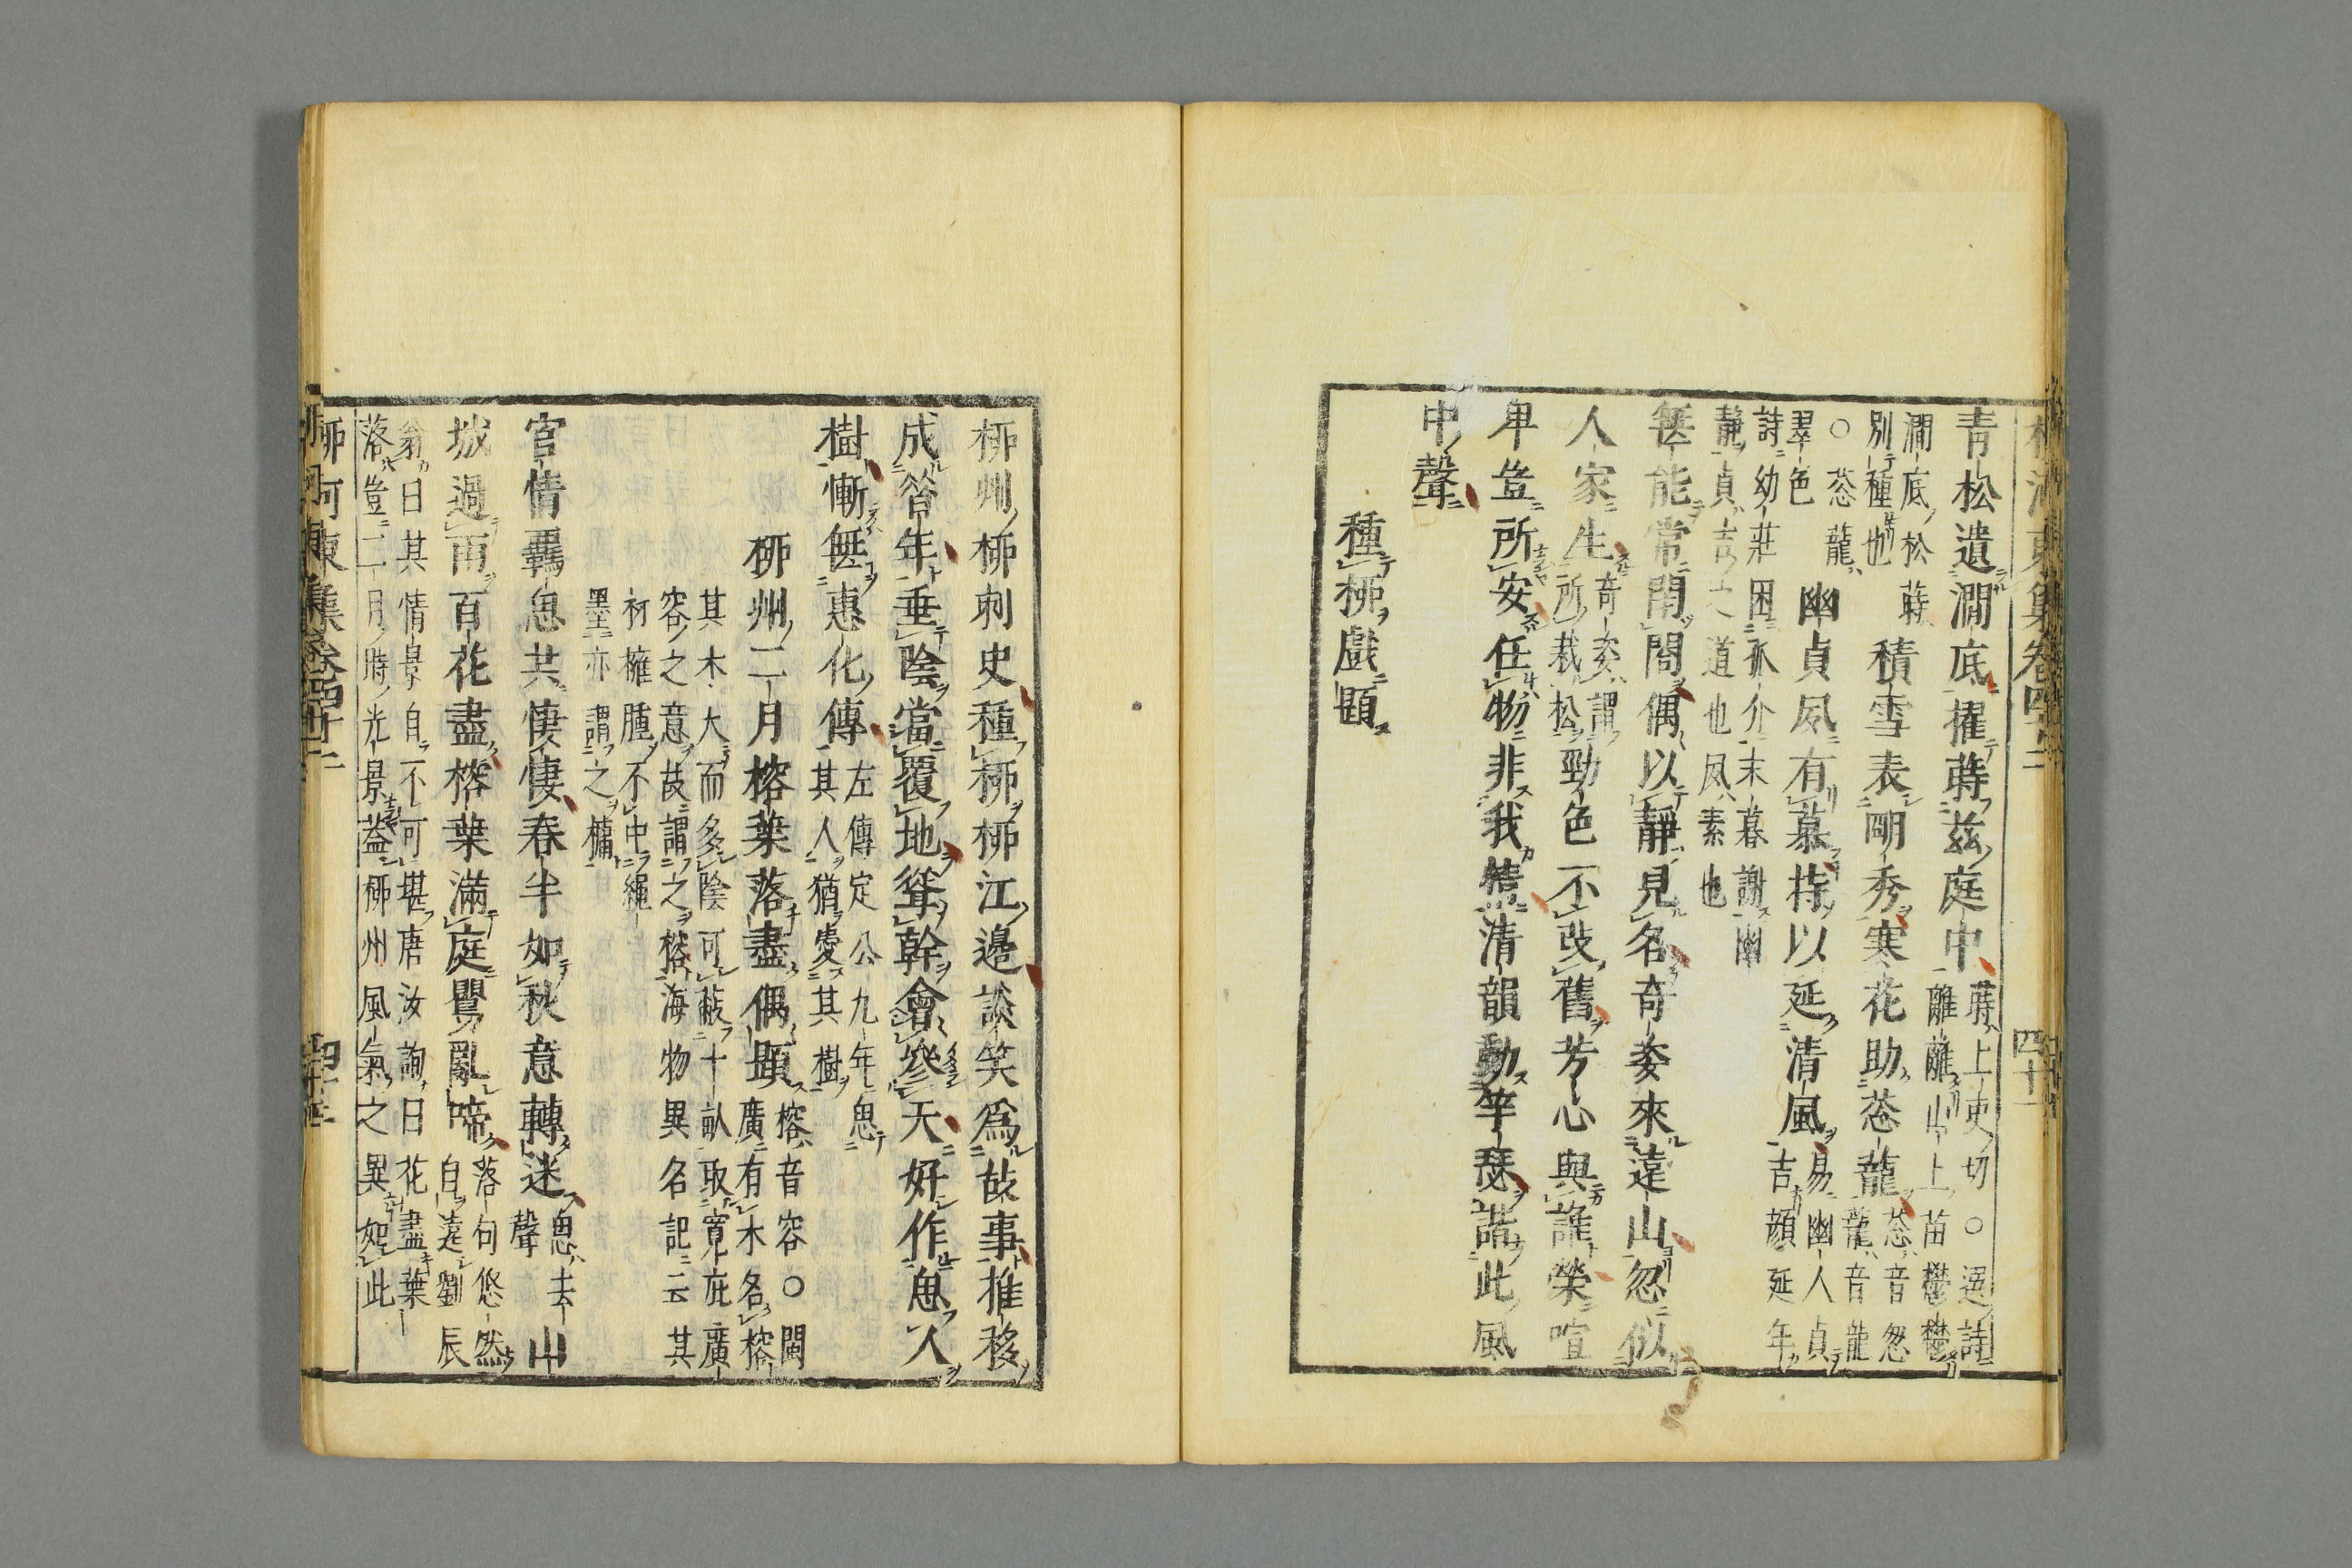 青松遺澗底擢蒔茲庭中
蒔上吏切○選詩
離離山上苗鬱鬱
澗底松蒔
別種也
積雪表明秀寒花助葱蘢
葱音怱
蘢音龍
○葱蘢
翠色
幽貞夙有慕持以延清風
易幽人貞
吉顔延年
詩幼莊困孤介末暮謝幽
靜貞吉之道也夙素也
無能常閉閤偶以靜見名奇姿來遠山忽似
人家生
奇姿謂
所栽松
勁色不改舊芳心與誰榮喧
卑豈所安任物非我情清韻動竽瑟諧此風
中聲
種柳戲題
柳州柳刺史種柳柳江邉談笑爲故事推移
成昔年垂陰當覆地聳幹會參天好作思人
樹慚無惠化傳
左傳定公九年思
其人猶愛其樹
柳州二月榕葉落盡偶題
榕音容○閩
廣有木名榕
其木大而多陰可蔽十畝取寬庇廣
容之意故謂之榕海物異名記云其
材擁腫不中繩
墨亦謂之槦
官情羈思共悽悽春半如秋意轉迷
思去
聲
山
城過雨百花盡榕葉滿庭鸎亂啼
落句悠然
自遠劉辰
翁曰其情景自不可堪唐汝詢曰花盡葉
落豈二月時光景葢柳州風氣之異如此
柳河東集卷四十二
四十三